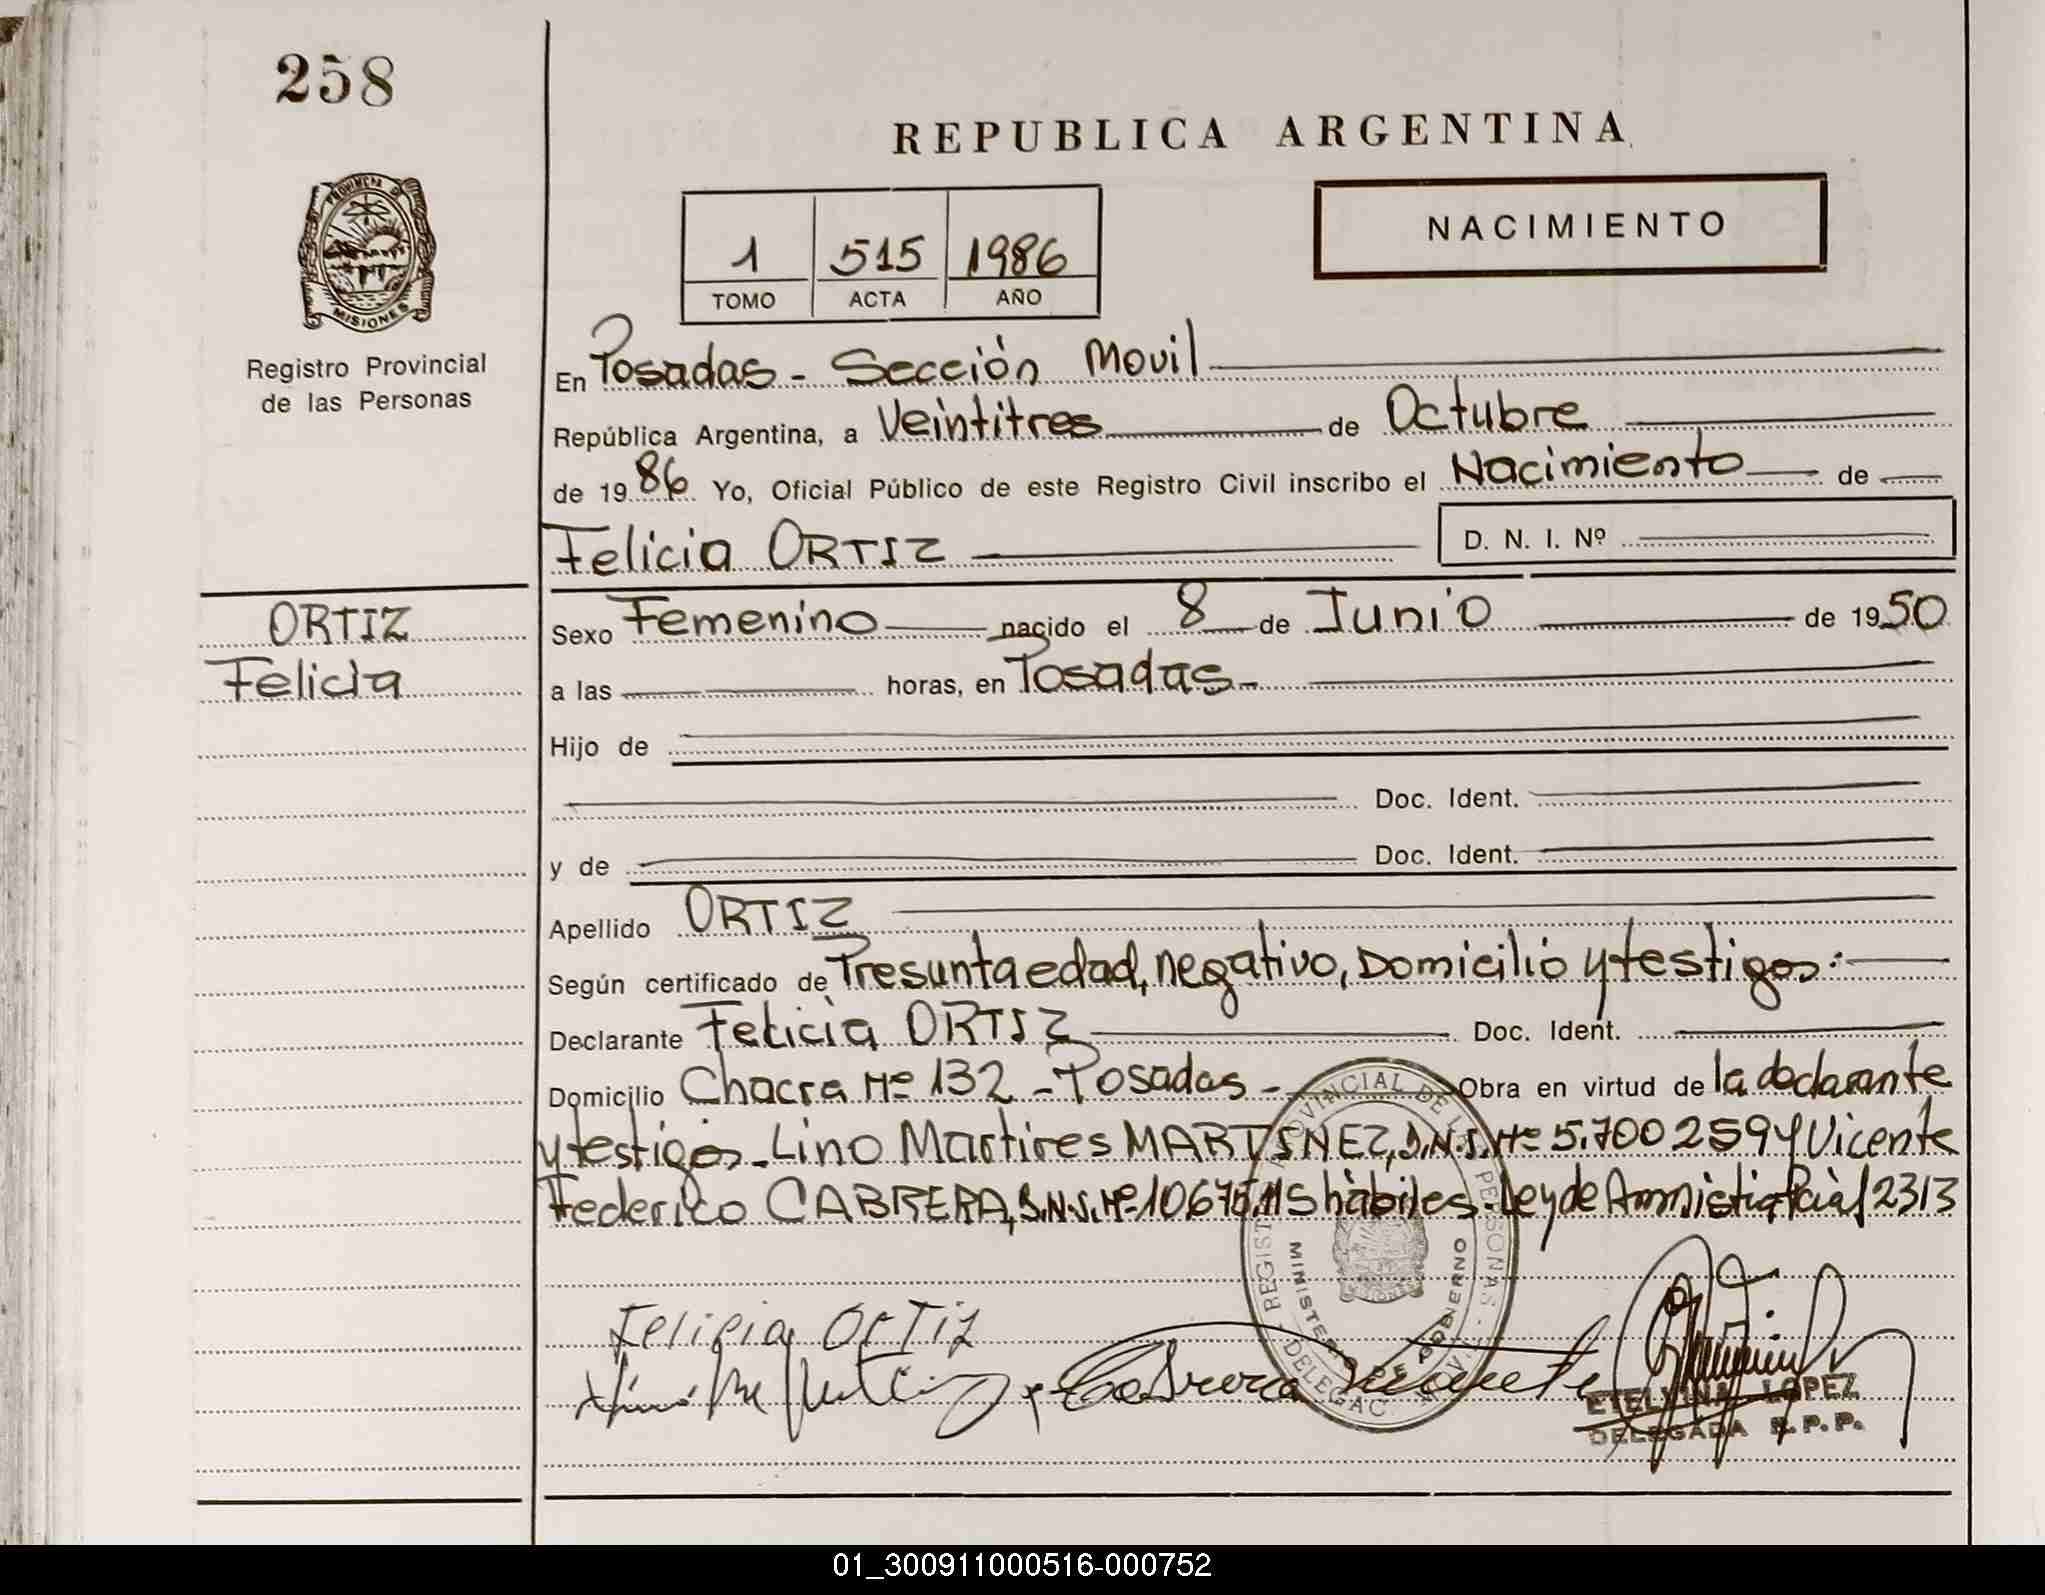 258
REPUBLICA ARGENTINA
NACIMIENTO
1 515 1986
TOMO ACTA AÑO
PROVINCIA DE MISIONES
Registro Provincial
de las Personas
En Posadas - Sección Movil
República Argentina, a Veintitres de Octubre
de 1986 Yo, Oficial Público de este Registro Civil inscribo el Nacimiento de
Felicia ORTIZ D. N. I. Nº
ORTIZ
Felicia
Sexo Femenino nacido el 8 de Junio de 1950
a las horas, en Posadas-
Hijo de
Doc. Ident.
y de Doc. Ident.
Apellido ORTIZ
Según certificado de Presunta edad, negativo, Domicilio y testigos:-
Declarante Felicia ORTIZ Doc. Ident.
Domicilio Chacra Nº 132 - Posadas - Obra en virtud de la declarante
y testigos - Lino Martires MARTINEZ, D.N.I. Nº 5.700259 y Vicente
Federico CABRERA, D.N.I. Nº 10675.115 hábiles - Ley de Amnistia Pcial 2313
REGISTRO PROVINCIAL DE LAS PERSONAS
MINISTERIO DE GOBIERNO
Felicia Ortiz
Cabrera Vicente
ETELVINA LOPEZ
DELEGADA R.P.P.
01_300911000516-000752